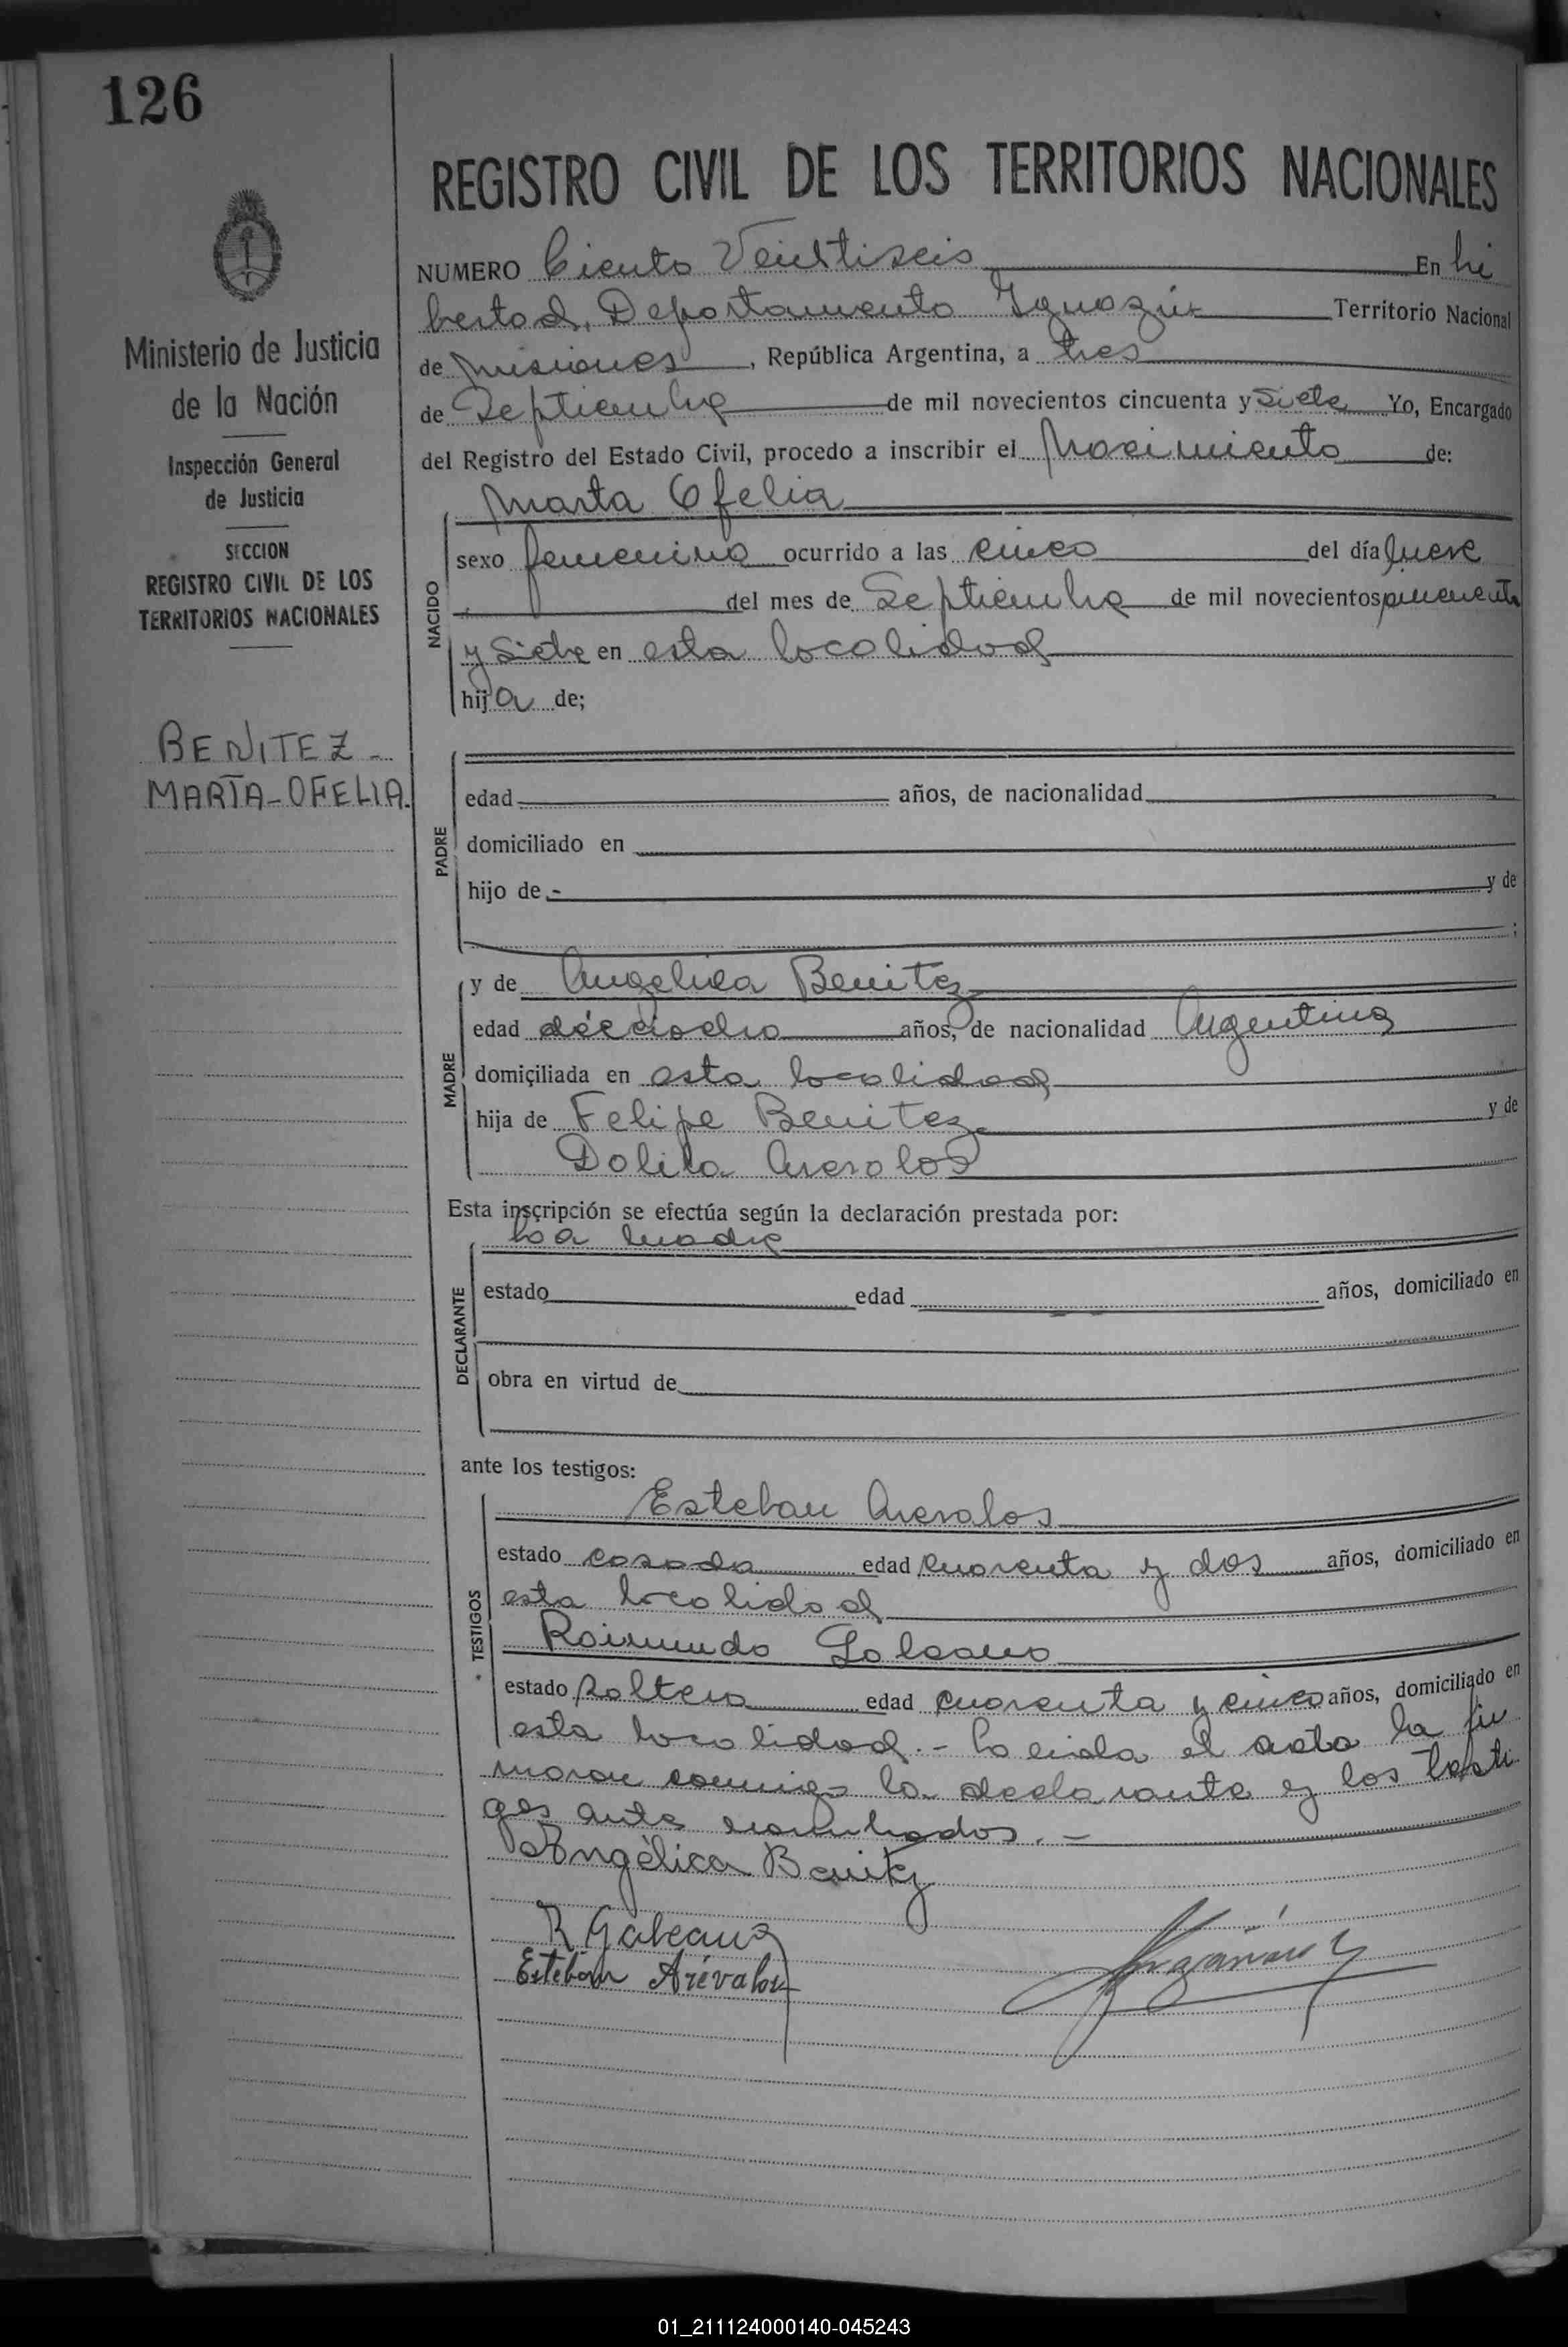 126
Ministerio de Justicia
de la Nación
Inspección General
de Justicia
SECCION
REGISTRO CIVIL DE LOS
TERRITORIOS NACIONALES
BENITEZ -
MARTA-OFELIA.
REGISTRO CIVIL DE LOS TERRITORIOS NACIONALES
NUMERO Ciento Veintiseis En Li
bertad, Departamento Iguazú Territorio Nacional
de Misiones, República Argentina, a tres
de Septiembre de mil novecientos cincuenta y siete Yo, Encargado
del Registro del Estado Civil, procedo a inscribir el Nacimiento de:
NACIDO
Marta Ofelia
sexo femenino ocurrido a las cinco del día
del mes de Septiembre de mil novecientos cincuenta
y siete en esta localidad
hija de;
PADRE
edad años, de nacionalidad
domiciliado en
hijo de - y de
;
MADRE
y de Angelica Benitez
edad dieciocho años, de nacionalidad Argentina
domiciliada en esta localidad
hija de Felipe Benitez y de
Arevalos
Esta inscripción se efectúa según la declaración prestada por:
DECLARANTE
La madre
estado edad años, domiciliado en
obra en virtud de
ante los testigos:
TESTIGOS
Esteban Arevalos
estado casado edad cuarenta y dos años, domiciliado en
esta localidad
Raimundo Galeano
estado soltero edad cuarenta y cinco años, domiciliado en
esta localidad.- Leida el acta la fir
maron conmigo la declarante y los testi
gos ante nombrados. -
Angélica Benitez
R Galeano
Esteban Arévalos
01_211124000140-045243